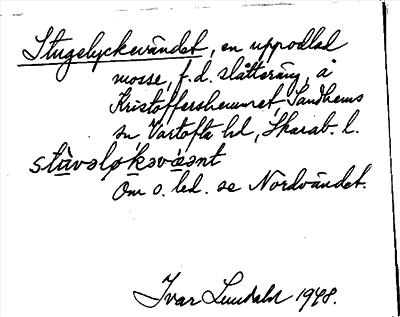 Stugelyckevändet, en uppodlad
mosse, f.d. slåtteräng, å
Kristoffershemmet, Sandhems
sn Vartofta hd, Skarab. l.
stàvəløkəvä̀ənt
Om s. led. se Nordvändet.
Ivar Lundahl 1948.